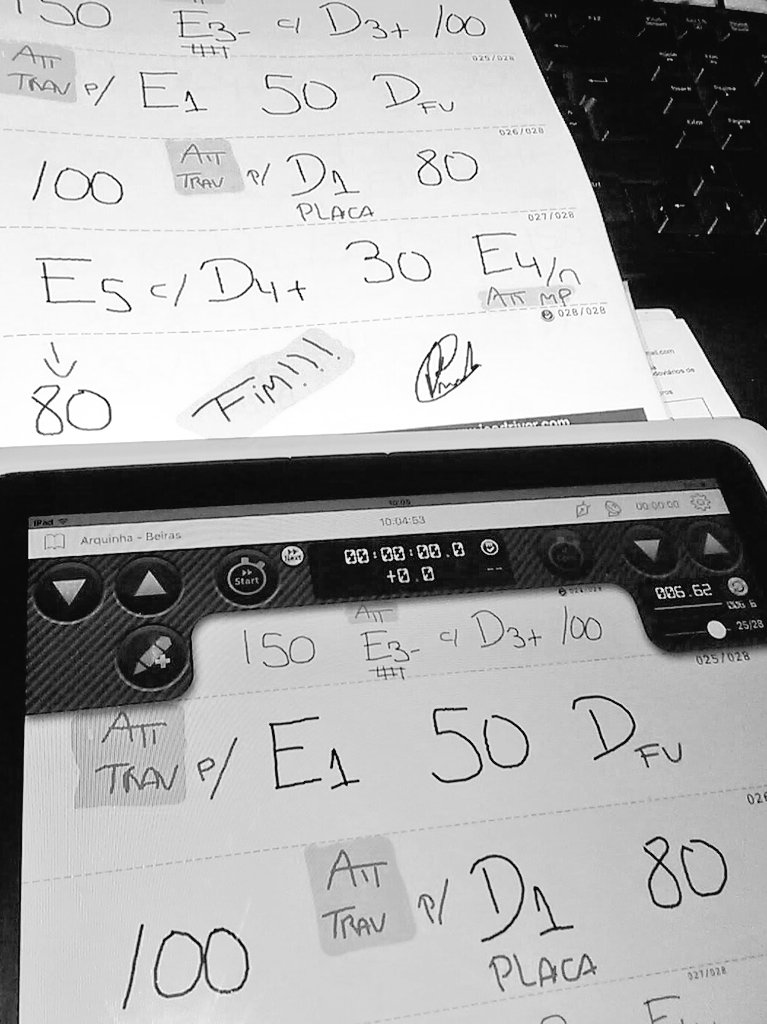 150 E3- c/ D3+ 100
025/028
ATT
TRAV P/ E1 50 DFU
026/028
100 ATT
TRAV P/ D1 80
PLACA
027/028
E5 c/ D4+ 30 E4/n
ATT MP
028/028
80 FIM!!!
iPad
10:05
Arquinha - Beiras 10:04:53 00:00:00
Start Next 00:00:00.0
+0.0 --
006.62
25/28
ATT
150 E3- c/ D3+ 100
025/028
ATT
TRAV P/ E1 50 DFU
026
ATT
100 TRAV P/ D1 80
PLACA
027/028